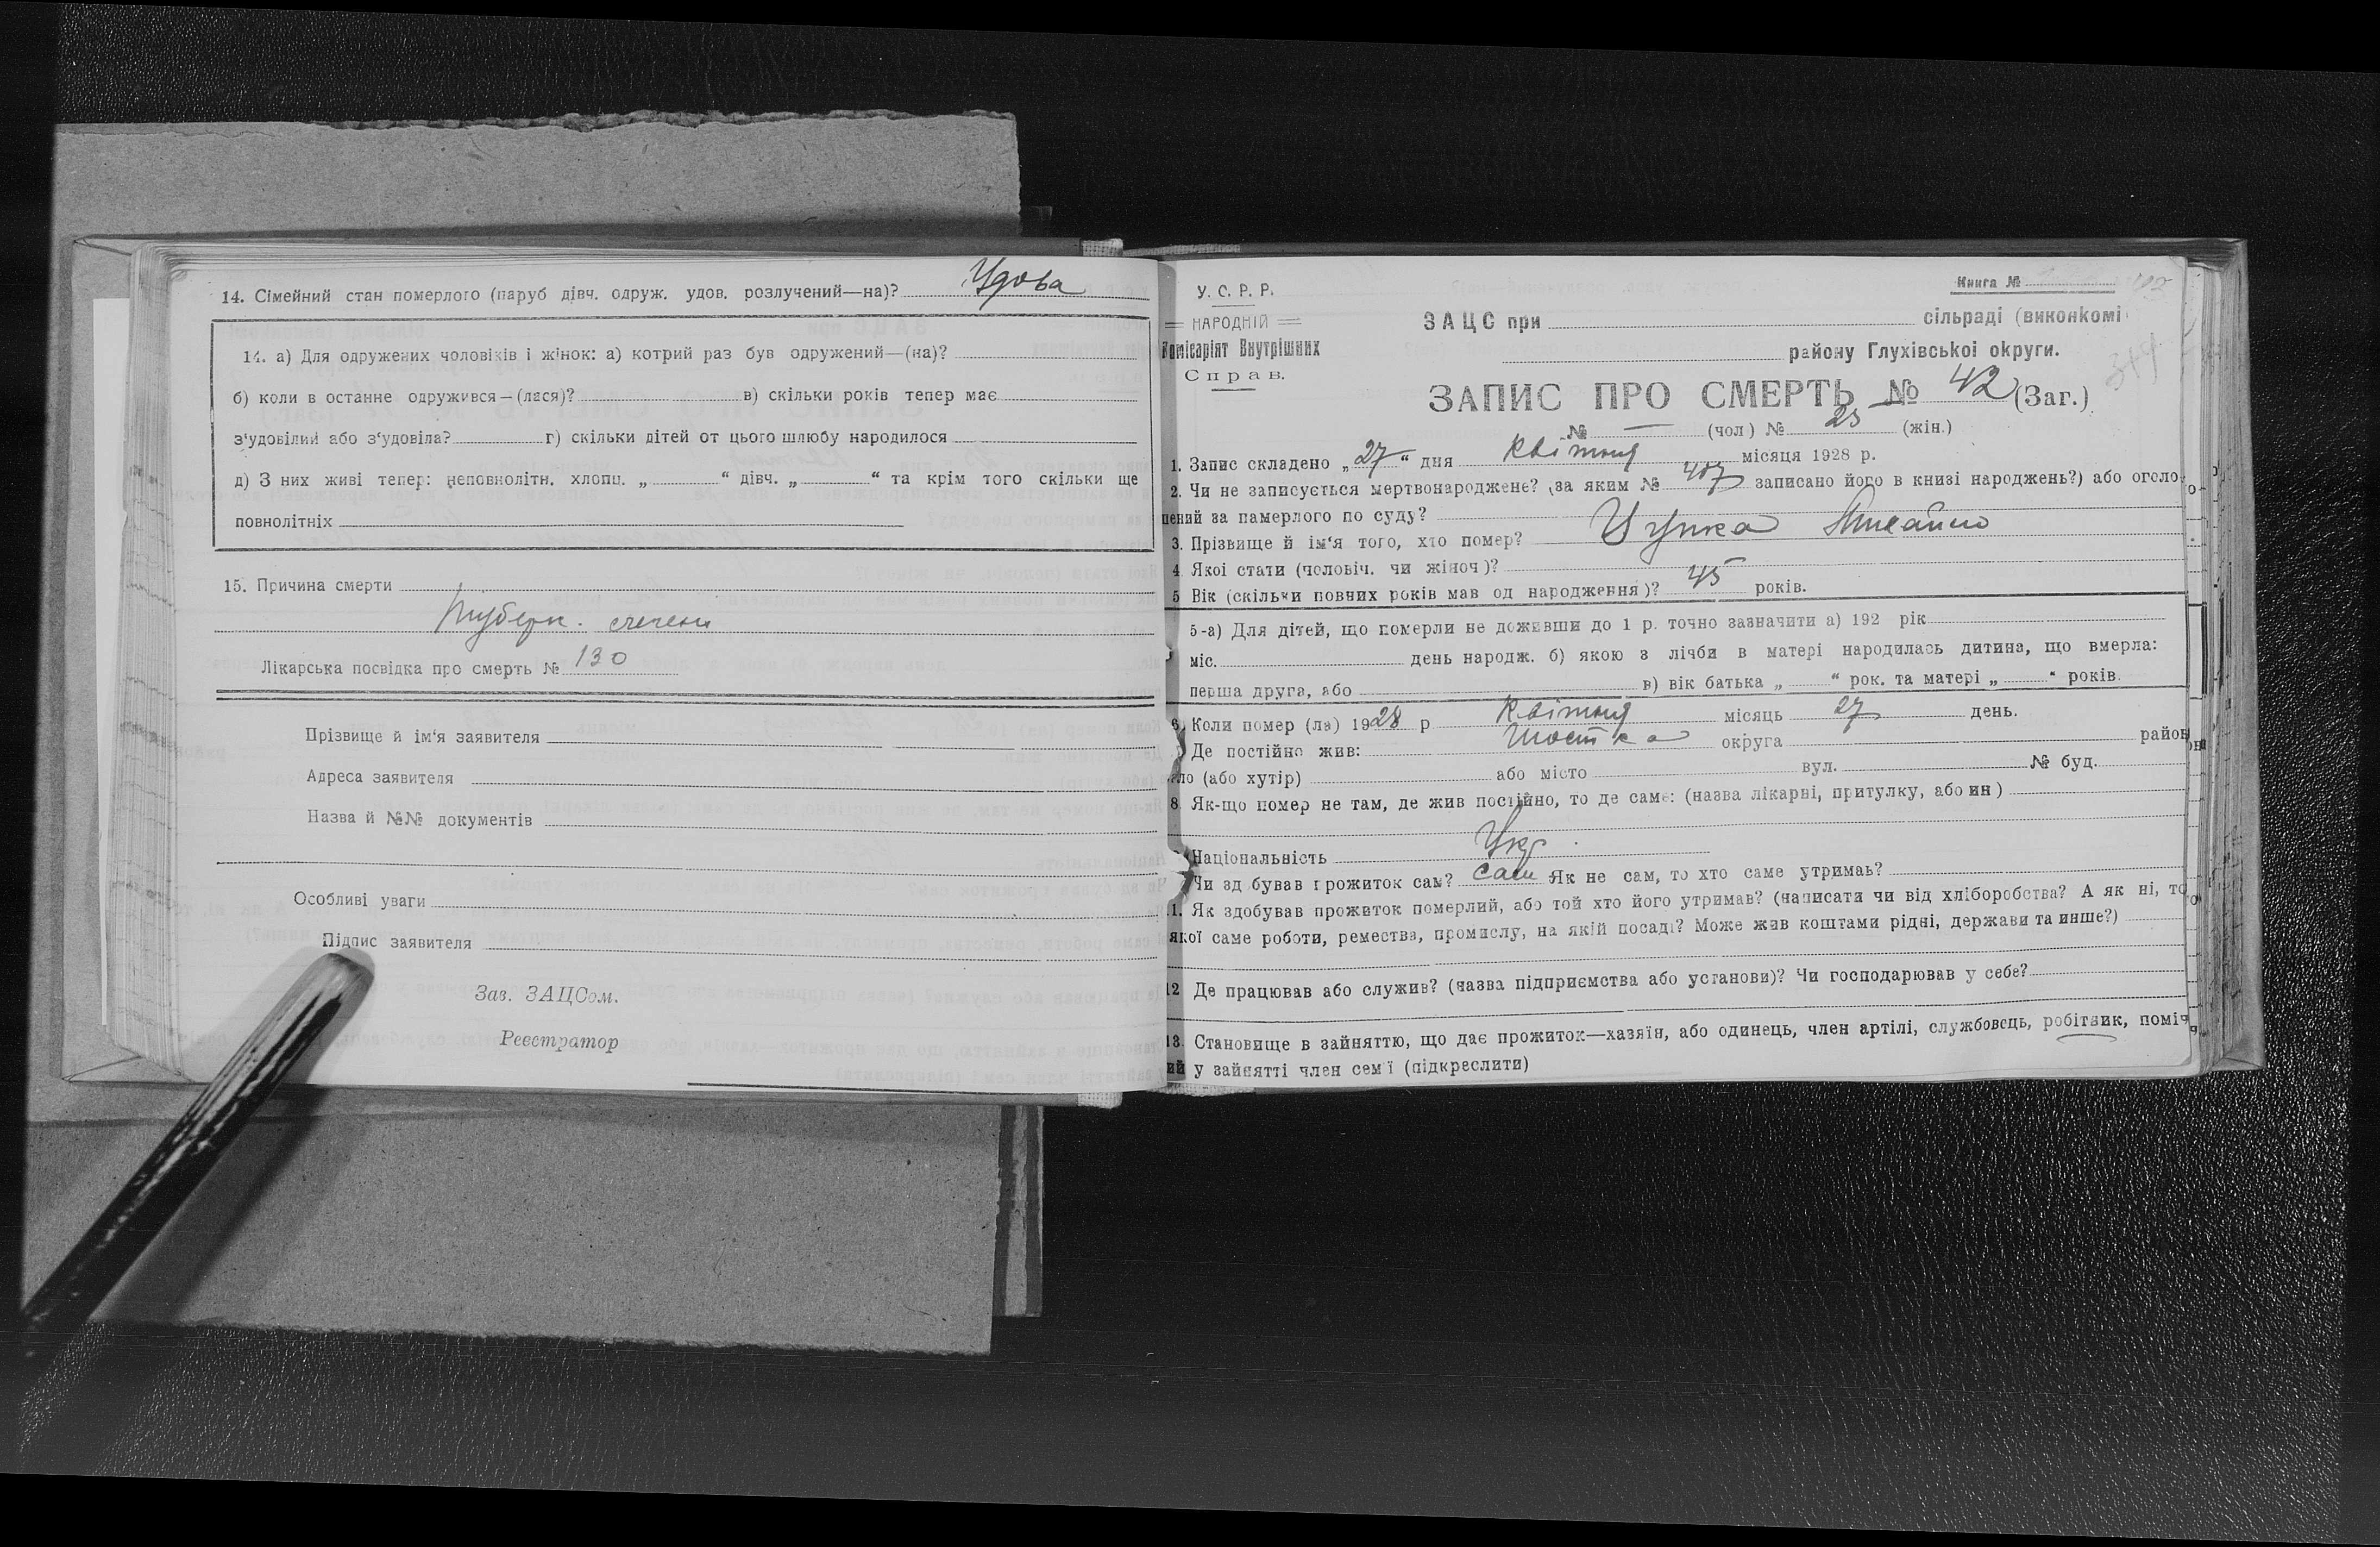 14. Сімейний стан померлого (паруб дівч. одруж. удов. розлучений—на)? Удова
14. а) Для одружених чоловіків і жінок: а) котрий раз був одружений—(на)?
б) коли в останне одружився—(лася)? в) скільки років тепер має
з'удовілий або з'удовіла? г) скільки дітей от цього шлюбу народилося
д) З них живі тепер: неповнолітн. хлопц. „ “ дівч. „ “ та крім того скільки ще
повнолітніх
15. Причина смерти
Туберк.
Лікарська посвідка про смерть № 130
Прізвище й ім'я заявителя
Адреса заявителя
Назва й №№ документів
Особливі уваги
Підпис заявителя
Зав. ЗАЦСом.
Реєстратор
Книга №
У. С. Р. Р.
НАРОДНІЙ
Комісаріят Внутрішних
Справ.
ЗАЦС при сільраді (виконкомі
району Глухівської округи.
ЗАПИС ПРО СМЕРТЬ № 42 (Заг.)
№ — (чол) № 23 (жін.)
1. Запис складено „27“ дня Квітня місяця 1928 р.
2. Чи не записується мертвонароджене? (за яким № 407 записано його в книзі народжень?) або оголо-
шений за памерлого по суду?
3. Прізвище й ім'я того, хто помер?
4. Якої стати (чоловіч. чи жіноч)?
5 Вік (скільки повних років мав од народження)? 45 років.
5-а) Для дітей, що померли не доживши до 1 р. точно зазначити а) 192 рік
міс. день народж. б) якою з лічби в матері народилась дитина, що вмерла:
перша друга, або в) вік батька „ “ рок. та матері „ “ років.
6. Коли помер (ла) 1928 р Квітня місяць 27 день.
Де постійно жив: Шостка округа район
або хутір) або місто вул. № буд.
8. Як-що помер не там, де жив постійно, то де саме: (назва лікарні, притулку, або ин)
Національність Укр.
Чи здбував прожиток сам? Сам Як не сам, то хто саме утримаь?
11. Як здобував прожиток померлий, або той хто його утримав? (написати чи від хліборобства? А як ні, то
якої саме роботи, ремества, промислу, на якій посаді? Може жив коштами рідні, держави та инше?)
12 Де працював або служив? (назва підприємства або установи)? Чи господарював у себе?
13. Становище в зайняттю, що дає прожиток—хазяїн, або одинець, член артілі, службовець, робітник, поміч
ий у зайнятті член сем'ї (підкреслити)